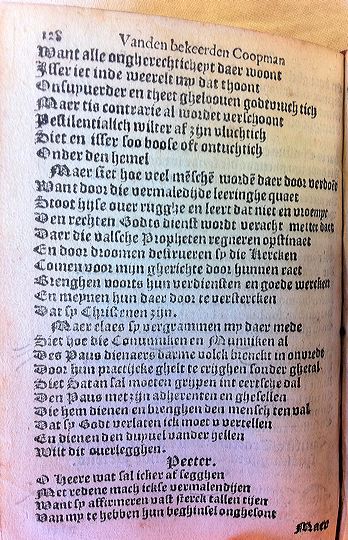 128 Vanden bekeerden Coopman
Want alle ongherechticheyt daer woont
Isser iet inde weerelt wy dat thoont
Onsuyverder en theet gheloovich godtvruchtich
Maer tis contrarie al wordet verschoont
Pestilentialich wilter af zijn vluchtich
Siet en isser soo boose oft ontuchtich
Onder den hemel
Maer siet hoe veel mẽschẽ wordẽ daer door verdoẽt
Want door die vermaledijde leeringhe quaet
Stoot hijse over rugghe en leert dat niet en vroempt
Den rechten Godts dienst wordt veracht met ter daet
Daer die valsche Propheten regneren opstinaet
En door droomen destrueren sy die Kercken
Comen voor mijn gherichte door hunnen raet
Brenghen voorts hun verdiensten en goede wercken
En meynen hun daer door te verstercken
Dat sy Christenen zijn.
Maer elaes sy vergrammen my daer mede
Siet hoe die Conuuniken en Munniken al
Des Paus dienaers darme volck brenckt in onvrede
Door hun practijcke ghelt te crijghen sonder ghetal
Siet Satan sal moeten grijpen int eertsche dal
Den Paus met zijn adherenten en ghesellen
Die hem dienen en brenghen den mensch ten val
Dat sy Godt verlaten ick moet v vertellen
En dienen den duyvel vander hellen
Wilt dit overlegghen.
Peeter.
O Heere wat sal icker af segghen
Met redene mach ickse vermalendijen
Want sy affirmeren vast sterck tallen tijen
Van my te hebben hun beghinsel onghesont
Maer